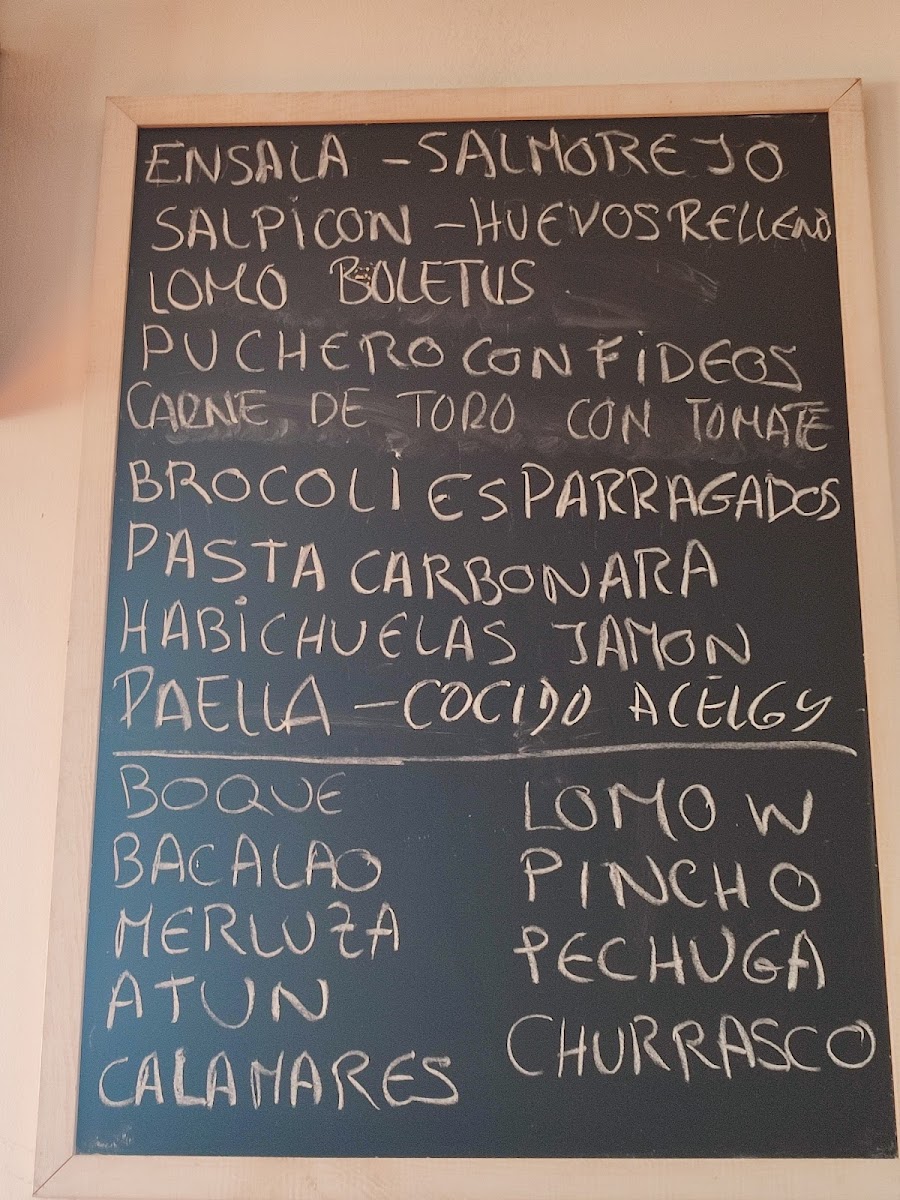 ENSALA - SALMOREJO
SALPICON - HUEVOS RELLENO
LOMO BOLETUS
PUCHERO CON FIDEOS
CARNE DE TORO CON TOMATE
BROCOLI ESPARRAGADOS
PASTA CARBONARA
HABICHUELAS JAMON
PAELLA - COCIDO ACELGY
BOQUE
BACALAO
MERLUZA
ATUN
CALAMARES
LOMO W
PINCHO
PECHUGA
CHURRASCO